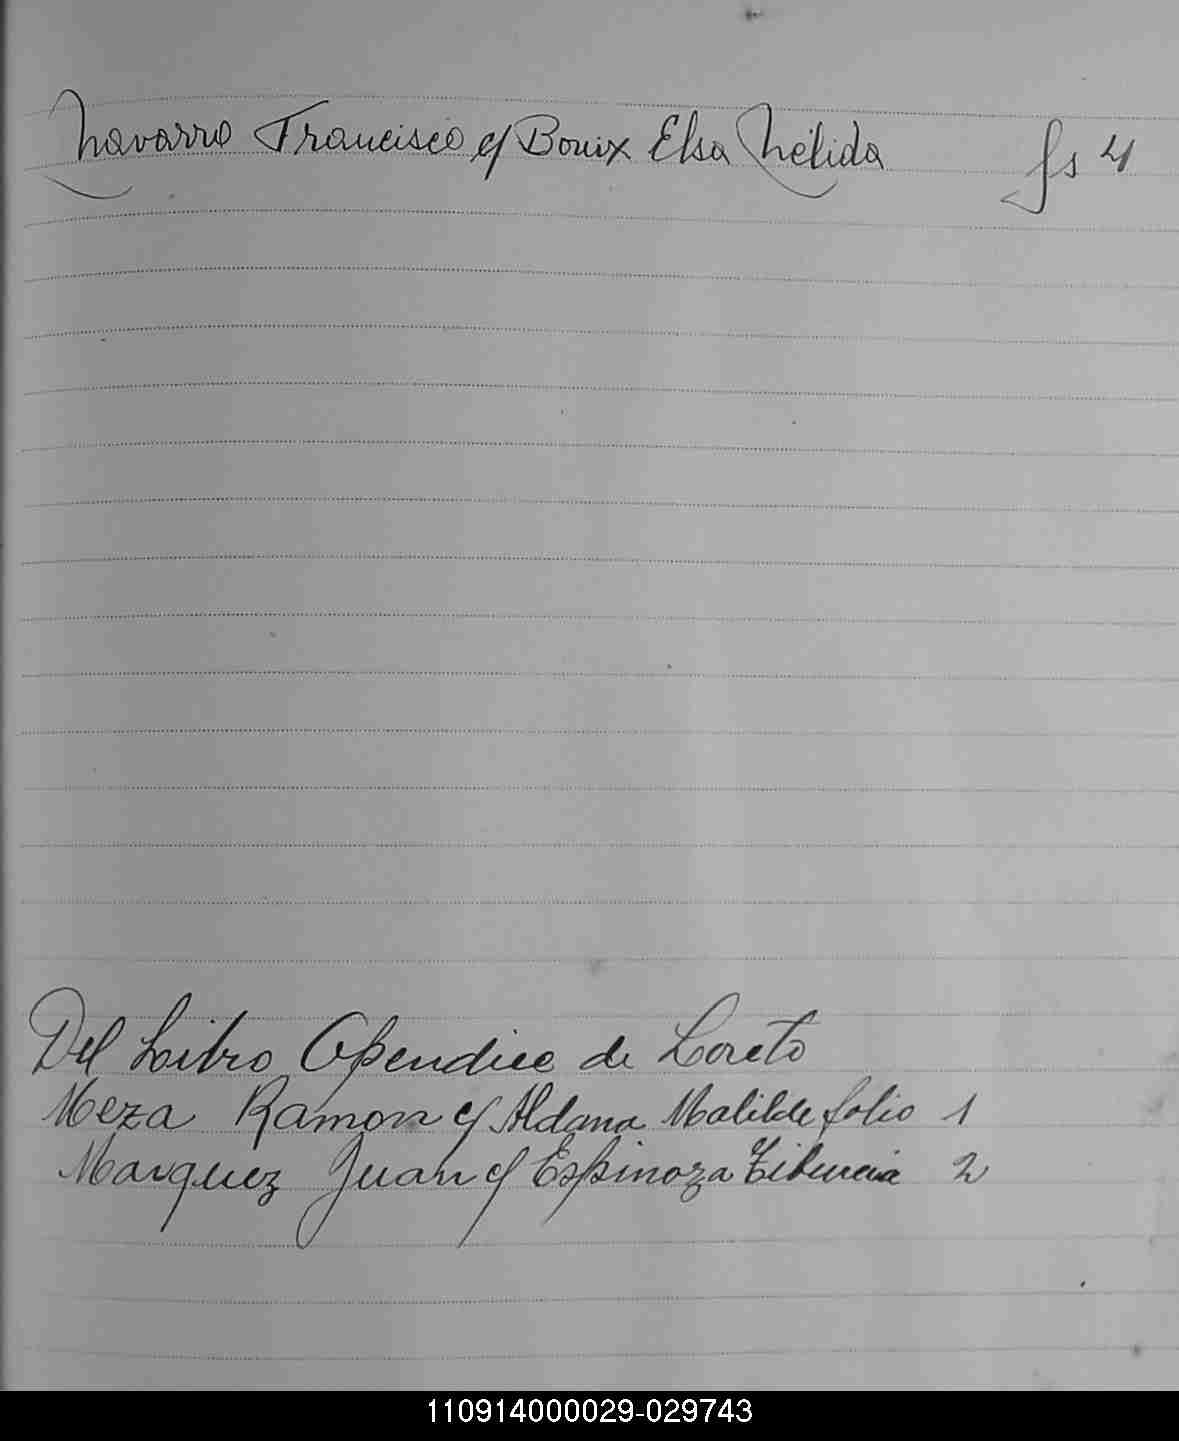 Navarro Francisco c/ Bouix Elsa Nélida fs 4
Del Libro Apendice de Loreto
Meza Ramon c/ Aldana Matilde folio 1
Marquez Juan c/ Espinoza Tiburcia 2
110914000029-029743